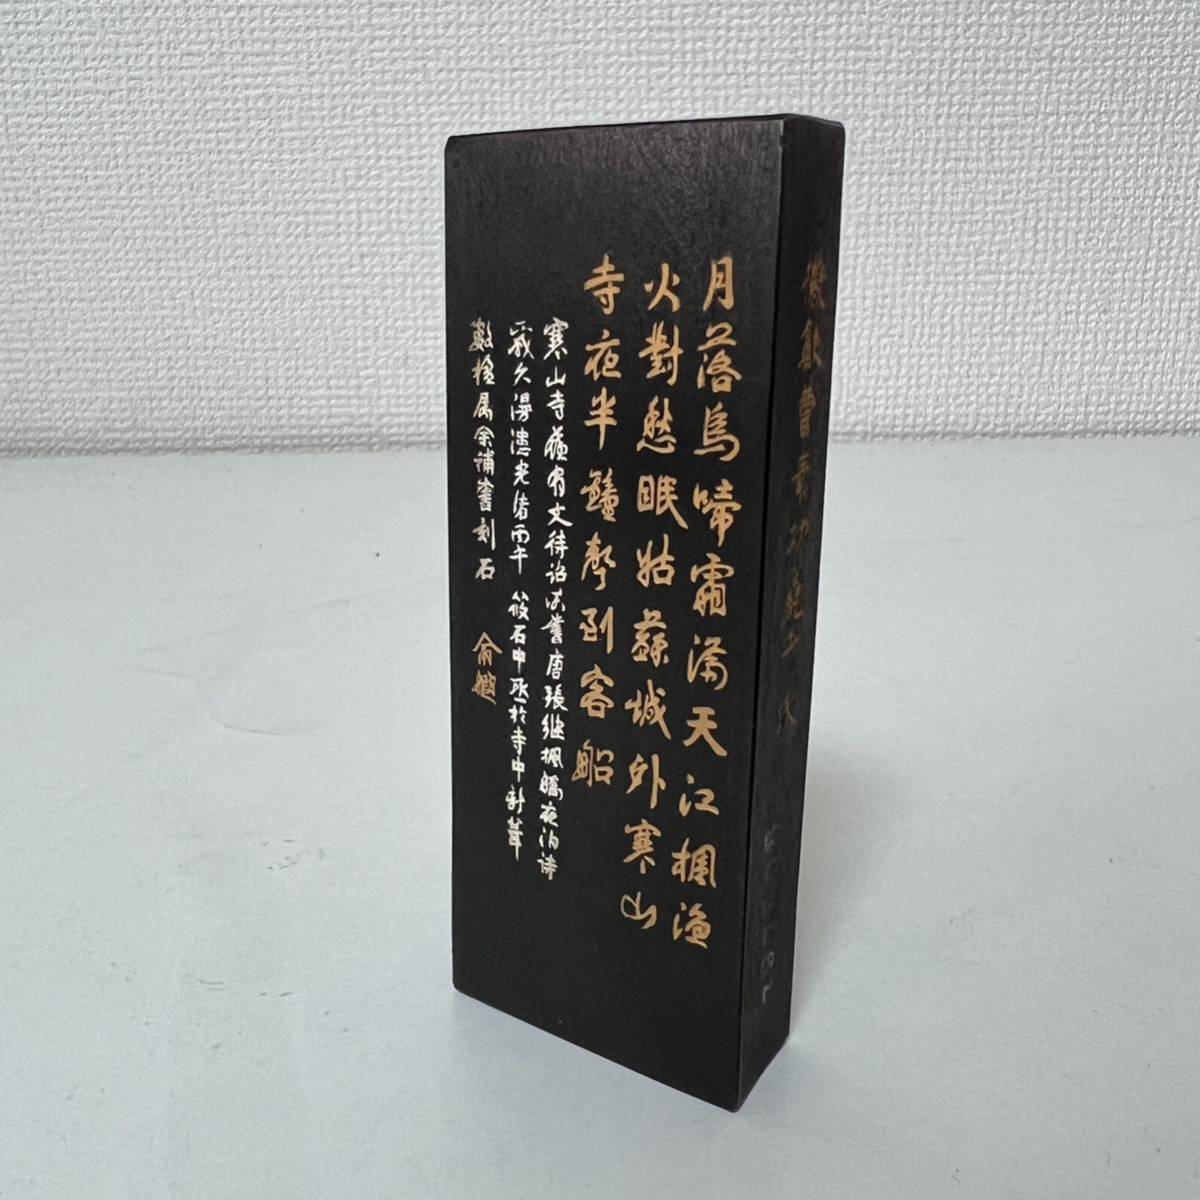 月落烏啼霜滿天江楓漁
火對愁眠姑蘇城外寒山
寺夜半鐘聲到客船
寒山寺舊有文待詔所書唐張繼楓橋夜泊詩
歲久漫漶光緒丙午 筱石中丞於寺中新葺
數楹屬余補書刻石 俞樾
徽歙曹素功堯千氏